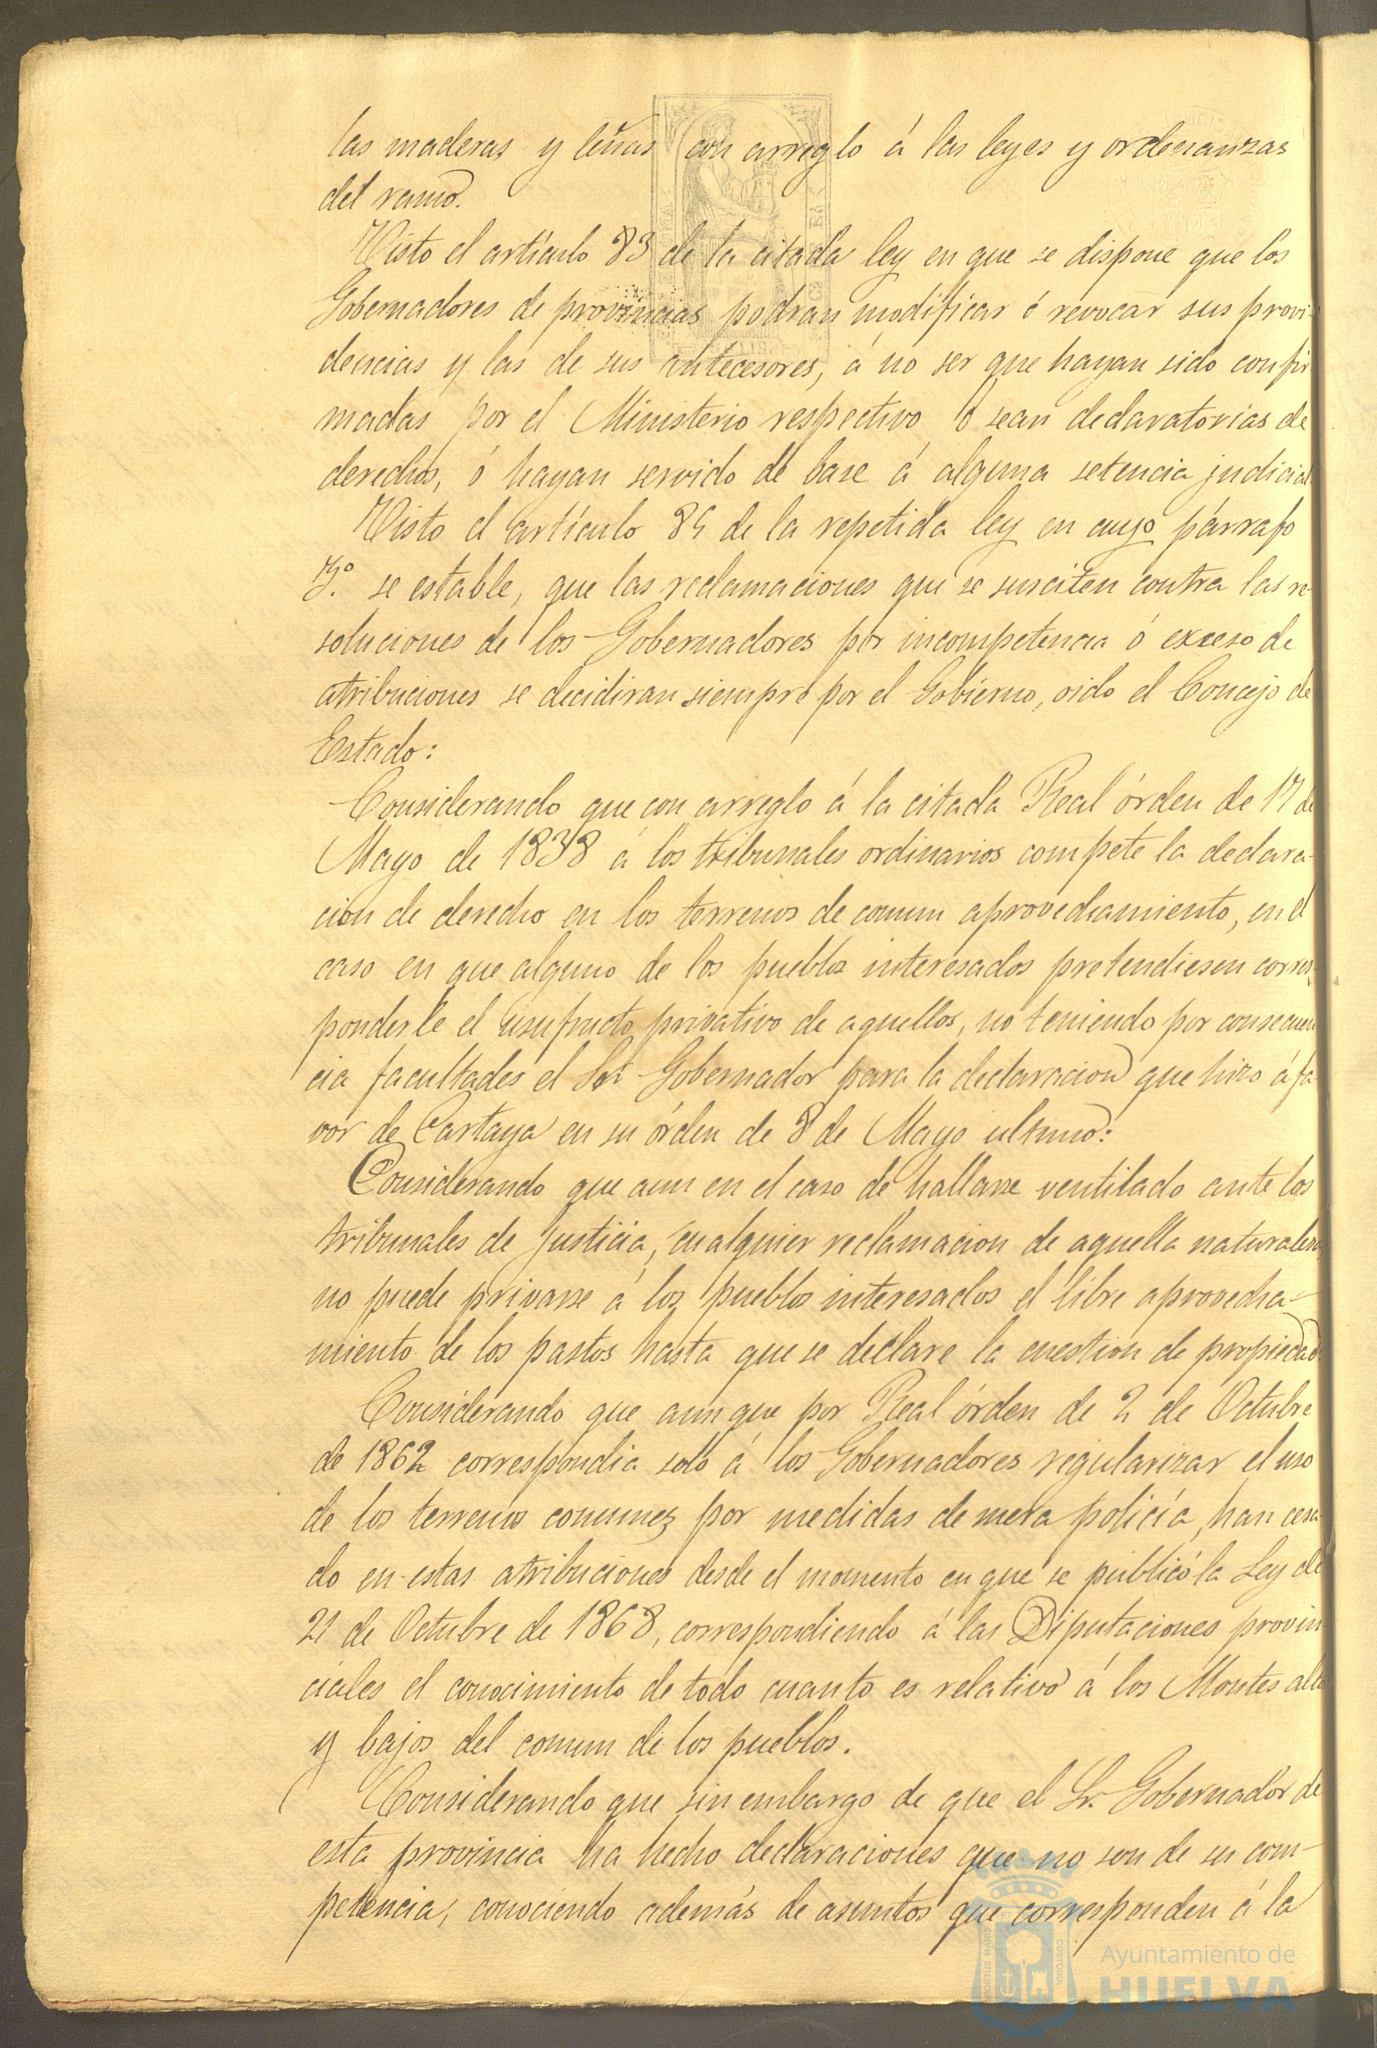 las maderas y leñas con arreglo á las leyes y ordenanzas
del ramo.
Visto el artículo 83 de la citada ley en que se dispone que los
Gobernadores de provincias podran modificar ó revocar sus provi-
dencias y las de sus antecesores, á no ser que hayan sido confir
madas por el Ministerio respectivo ó sean declaratorias de
derechos, ó hayan servido de base á alguna setencia judicial
Visto el artículo 85 de la repetida ley en cuyo párrafo
3º. se estable, que las reclamaciones que se susciten contra las re
soluciones de los Gobernadores por incompetencia ó exceso de
atribuciones se decidiran siempre por el Gobierno, oido el Concejo de
Estado:
Considerando que con arreglo á la citada Real órden de 17 de
Mayo de 1838 á los tribunales ordinarios compete la declara-
cion de derecho en los terrenos de comun aprovechamiento, en el
caso en que alguno de los pueblos interesados pretendiesen corres-
ponderle el usufructo privativo de aquellos, no teniendo por consecuen
cia facultades el Sor Gobernador para la declaracion que hizo á fa-
vor de Cartaya en su órden de 8 de Mayo ultimo:
Considerando que aun en el caso de hallarse ventilado ante los
tribunales de Justicia, cualquier reclamacion de aquella naturaleza
no puede privarse á los pueblos interesados el libre aprovecha-
miento de los pastos hasta que se declare la cuestion de propiedad
Considerando que aunque por Real órden de 2 de Octubre
de 1862 correspondia solo á los Gobernadores regularizar el uso
de los terrenos comunes por medidas de mera policía, han cesa
do en estas atribuciones desde el momento en que se publicó la Ley de
21 de Octubre de 1868, correspondiendo á las Diputaciones provin
ciales el conocimiento de todo cuanto es relativo á los Montes altos
y bajos del comun de los pueblos.
Considerando que sin embargo de que el Sr. Gobernador de
esta provincia ha hecho declaraciones que no son de su com-
petencia, conociendo además de asuntos que corresponden á la
Ayuntamiento de
HUELVA